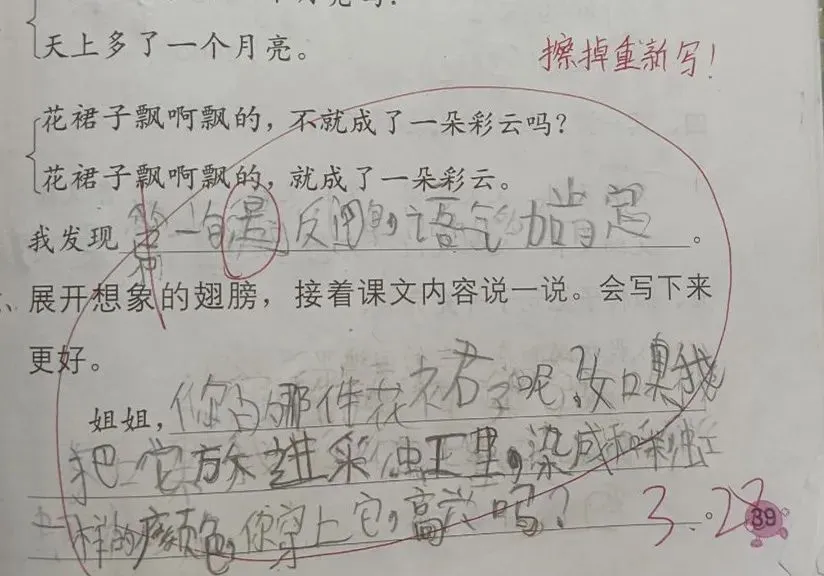 天上多了一个月亮。
擦掉重新写！
花裙子飘啊飘的，不就成了一朵彩云吗？
花裙子飘啊飘的，就成了一朵彩云。
我发现 第一句是反问句，语气 加肯定。
展开想象的翅膀，接着课文内容说一说。会写下来
更好。
姐姐，你的那件花裙子呢？如果我
把它放进彩虹里，染成和彩虹
一样的颜色，你穿上它，高兴吗？
3.27
39